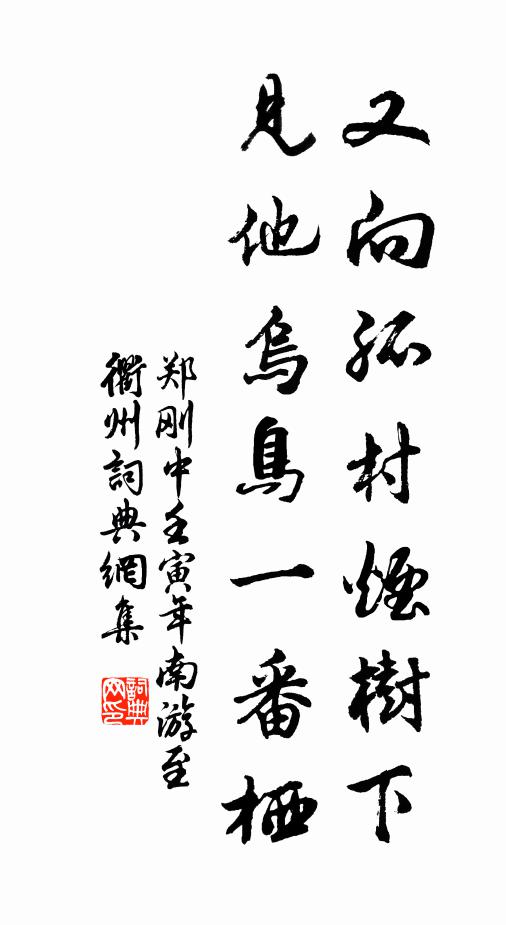 又向孤村煙樹下
見他烏鳥一番栖
郑刚中壬寅年南游至
衢州詞典網集
詞典网印